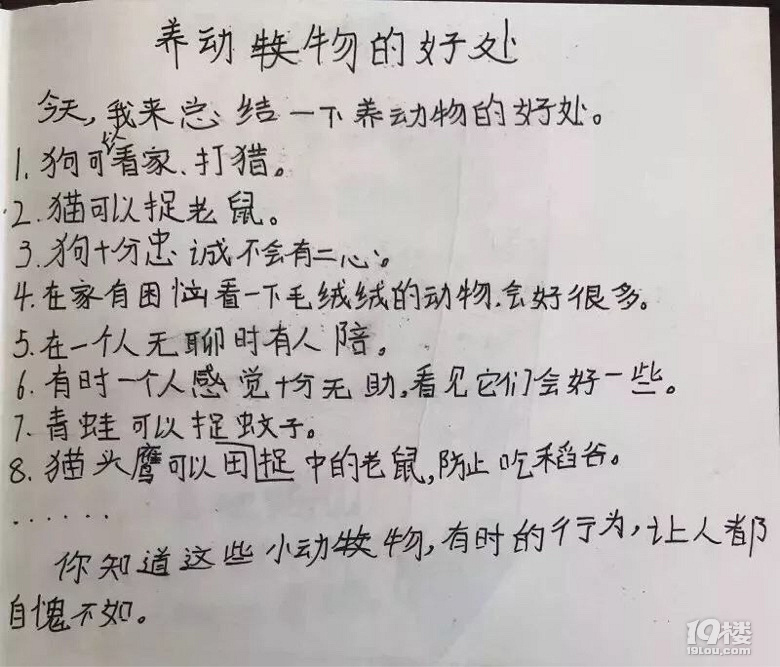 养动物的好处
今天,我来总结一下养动物的好处。
1.狗可以看家、打猎。
2.猫可以捉老鼠。
3.狗十分忠诚不会有二心。
4.在家有困恼看一下毛绒绒的动物.会好很多。
5.在一个人无聊时有人陪。
6.有时一个人感觉十分无助,看见它们会好一些。
7.青蛙可以捉蚊子。
8.猫头鹰可以田捉中的老鼠,防止吃稻谷。
......
你知道这些小动物,有时的行为,让人都
自愧不如。
19楼
19lou.com